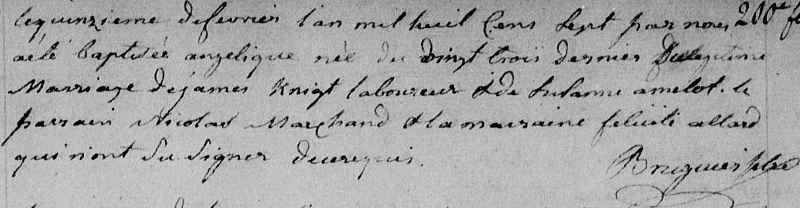 le quinzieme de fevrier l'an mil huit Cens Sept par nous
a été baptisée angelique née du vingt trois dernier Du legitime
Marriage de james Knigt laboureur & de Susanne amelot. le
parrain Nicolas Marchand & la marraine felicité allard
qui n'ont Su Signer de ce requis.